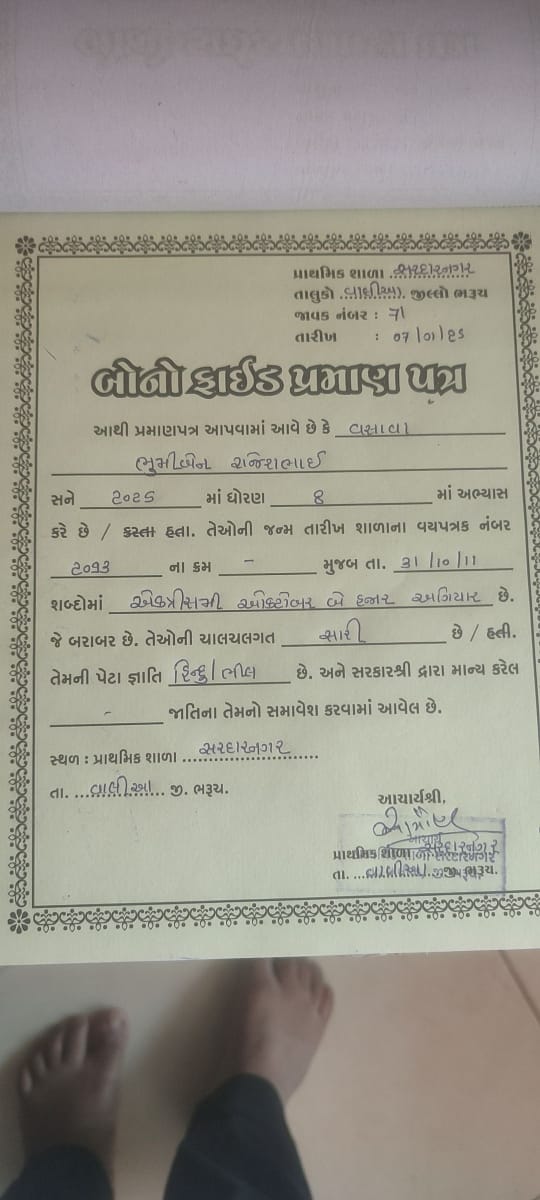 પ્રાથમિક શાળા ..સરદારનગર
તાલુકો .વાલીઆ. જીલ્લો ભરૂચ
જાવક નંબર : 71
તારીખ : ૦7/૦1/૨૬
બોનોફાઈડ પ્રમાણ પત્ર
આથી પ્રમાણપત્ર આપવામાં આવે છે કે વસાવા
ભુમીબેન રાજેશભાઈ
સને ૨૦૨૬ માં ધોરણ 8 માં અભ્યાસ
કરે છે / કરતા હતા. તેઓની જન્મ તારીખ શાળાના વયપત્રક નંબર
૨૦૧૩ ના ક્રમ - મુજબ તા. ૩1/10/11
શબ્દોમાં એકત્રીસમી ઓક્ટોબર બે હજાર અગિયાર છે.
જે બરાબર છે. તેઓની ચાલચલગત સારી છે / હતી.
તેમની પેટા જ્ઞાતિ હિન્દુ/ભીલ છે. અને સરકારશ્રી દ્વારા માન્ય કરેલ
- જાતિના તેમનો સમાવેશ કરવામાં આવેલ છે.
સ્થળ : પ્રાથમિક શાળા ..સરદારનગર......
તા. ...વાલીઆ.. જી. ભરૂચ.
આચાર્યશ્રી,
આચાર્ય
પ્રાથમિક શાળા સરદારનગર
તા. ...વાલીઆ.. જી. ભરૂચ.